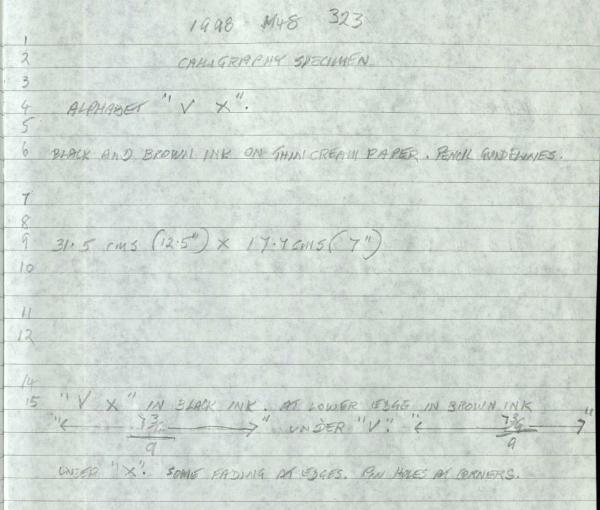 1998 M48 323
1
2 CALLIGRAPHY SPECIMEN
3
4 ALPHABET "V X".
5
6 BLACK AND BROWN INK ON THIN CREAM PAPER. PENCIL GUIDELINES.
7
8
9 31.5 cms (12.5") X 17.7 cms (7")
10
11
12
14
15 "V X" IN BLACK INK. AT LOWER EDGE IN BROWN INK
"← → " UNDER "V". "← → "
9 9
UNDER "X". SOME FADING AT EDGES. PIN HOLES AT CORNERS.